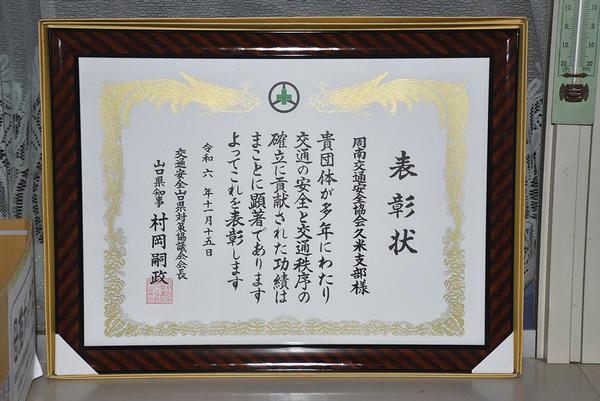 表彰状
周南交通安全協会久米支部様
貴団体が多年にわたり
交通の安全と交通秩序の
確立に貢献された功績は
まことに顕著であります
よってこれを表彰します
令和六年十一月十五日
交通安全山口県対策協議会会長
山口県知事 村岡嗣政